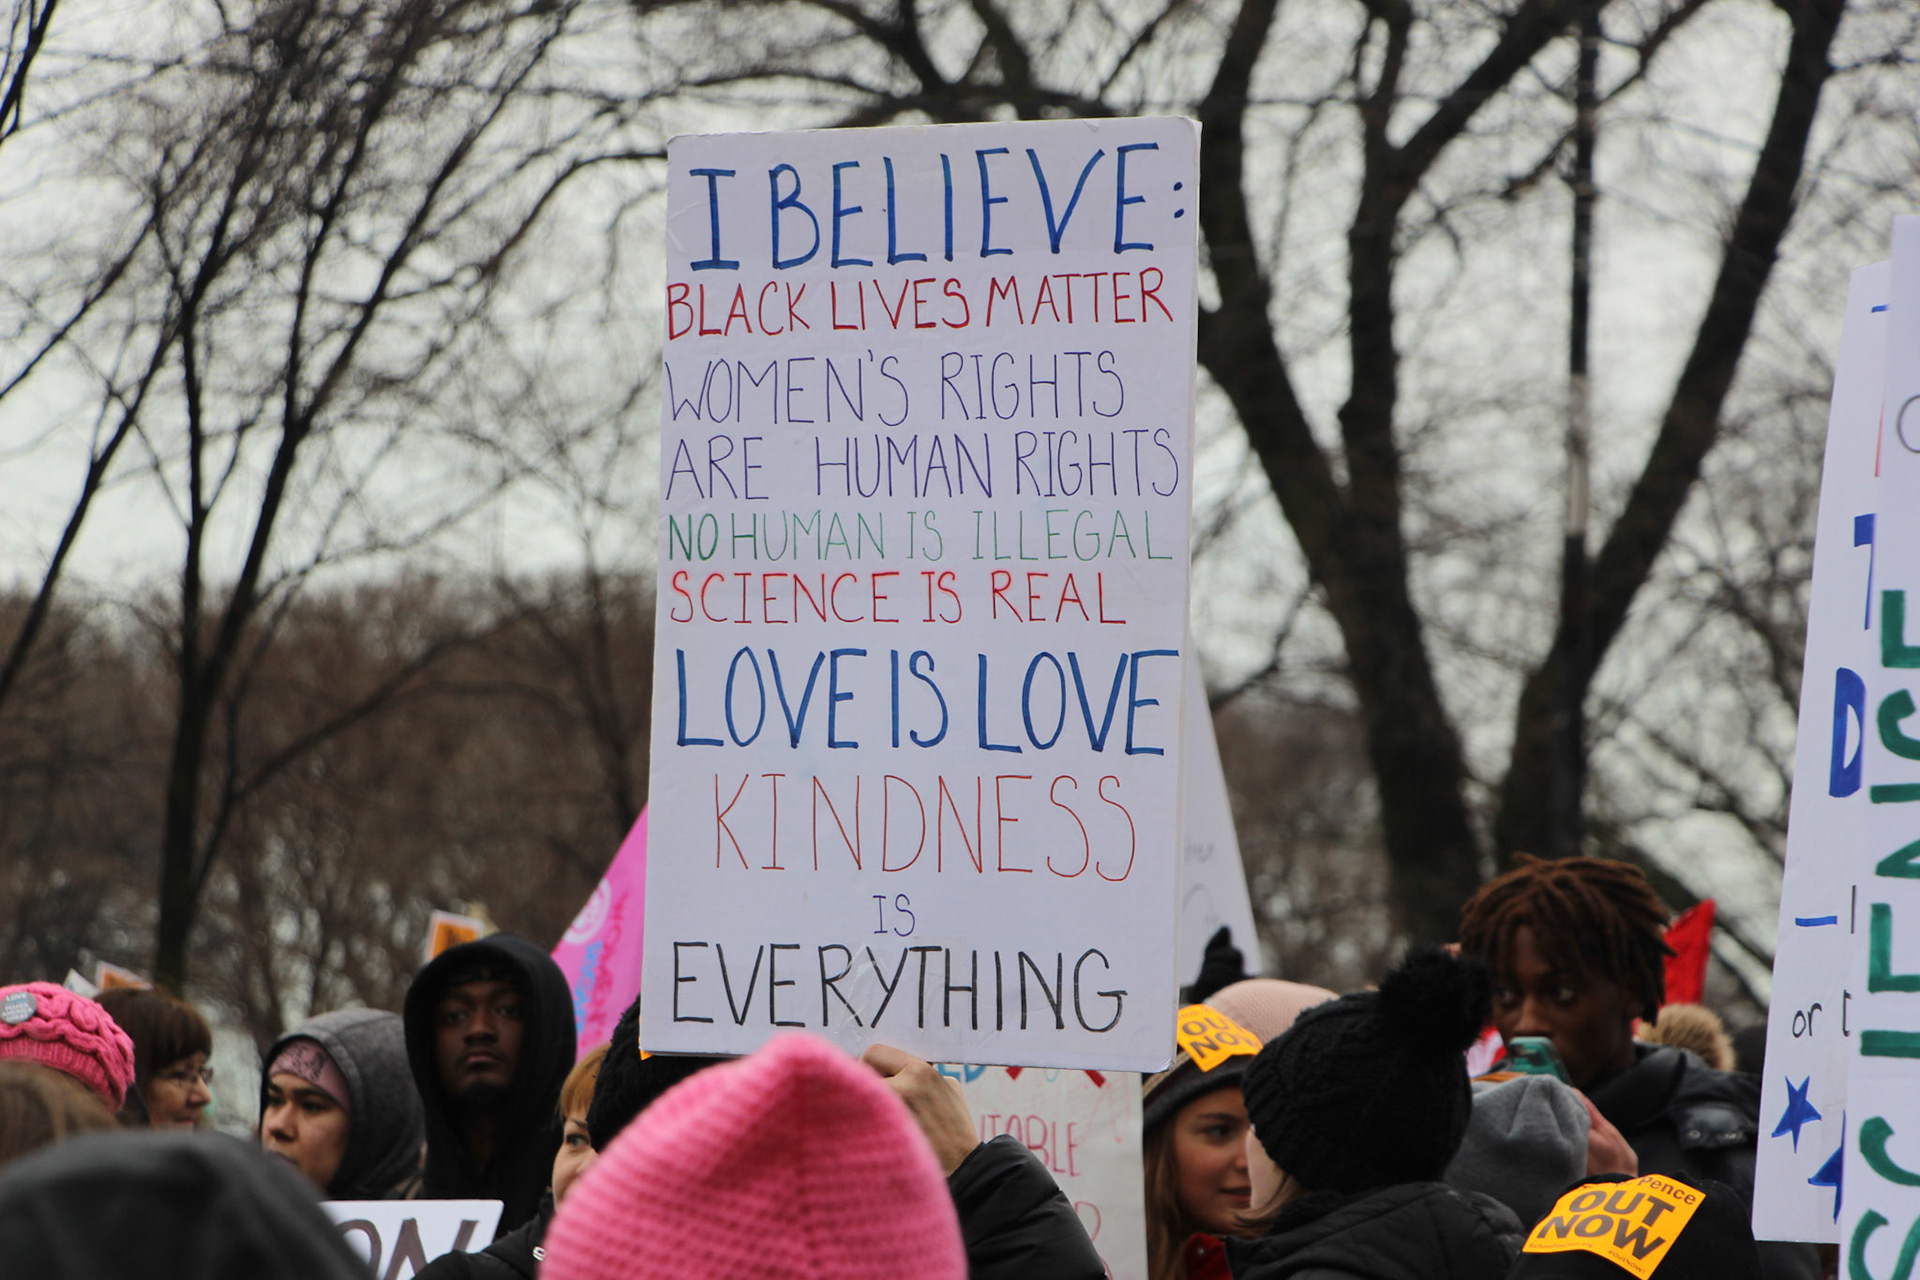 I BELIEVE:
BLACK LIVES MATTER
WOMEN'S RIGHTS
ARE HUMAN RIGHTS
NO HUMAN IS ILLEGAL
SCIENCE IS REAL
LOVE IS LOVE
KINDNESS
IS
EVERYTHING
OUT
NOW
Pence
OUT
NOW
or
LOVE
ON